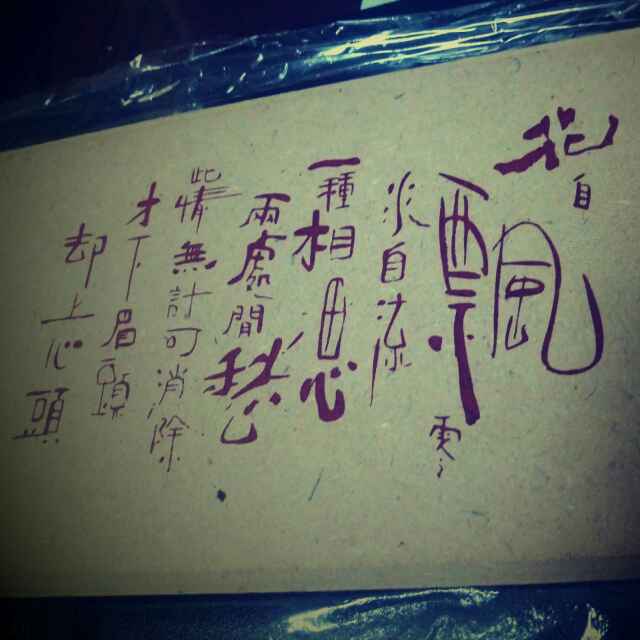 花自
飄零
水自流
一種相思
兩處間愁
此情無計可消除
才下眉頭
却上心頭